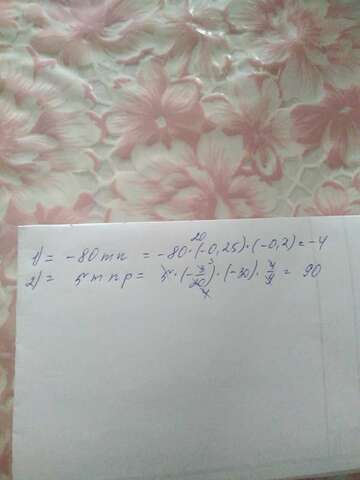 1) = -80mn = -80·(-0,25)·(-0,2) = -4
2) = 5mnp = 5·(-3/20)·(-30)·4/9 = 90